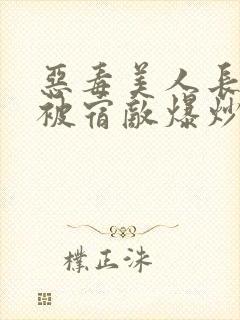 惡毒美人長
被宿敵爆炒
樸正洙